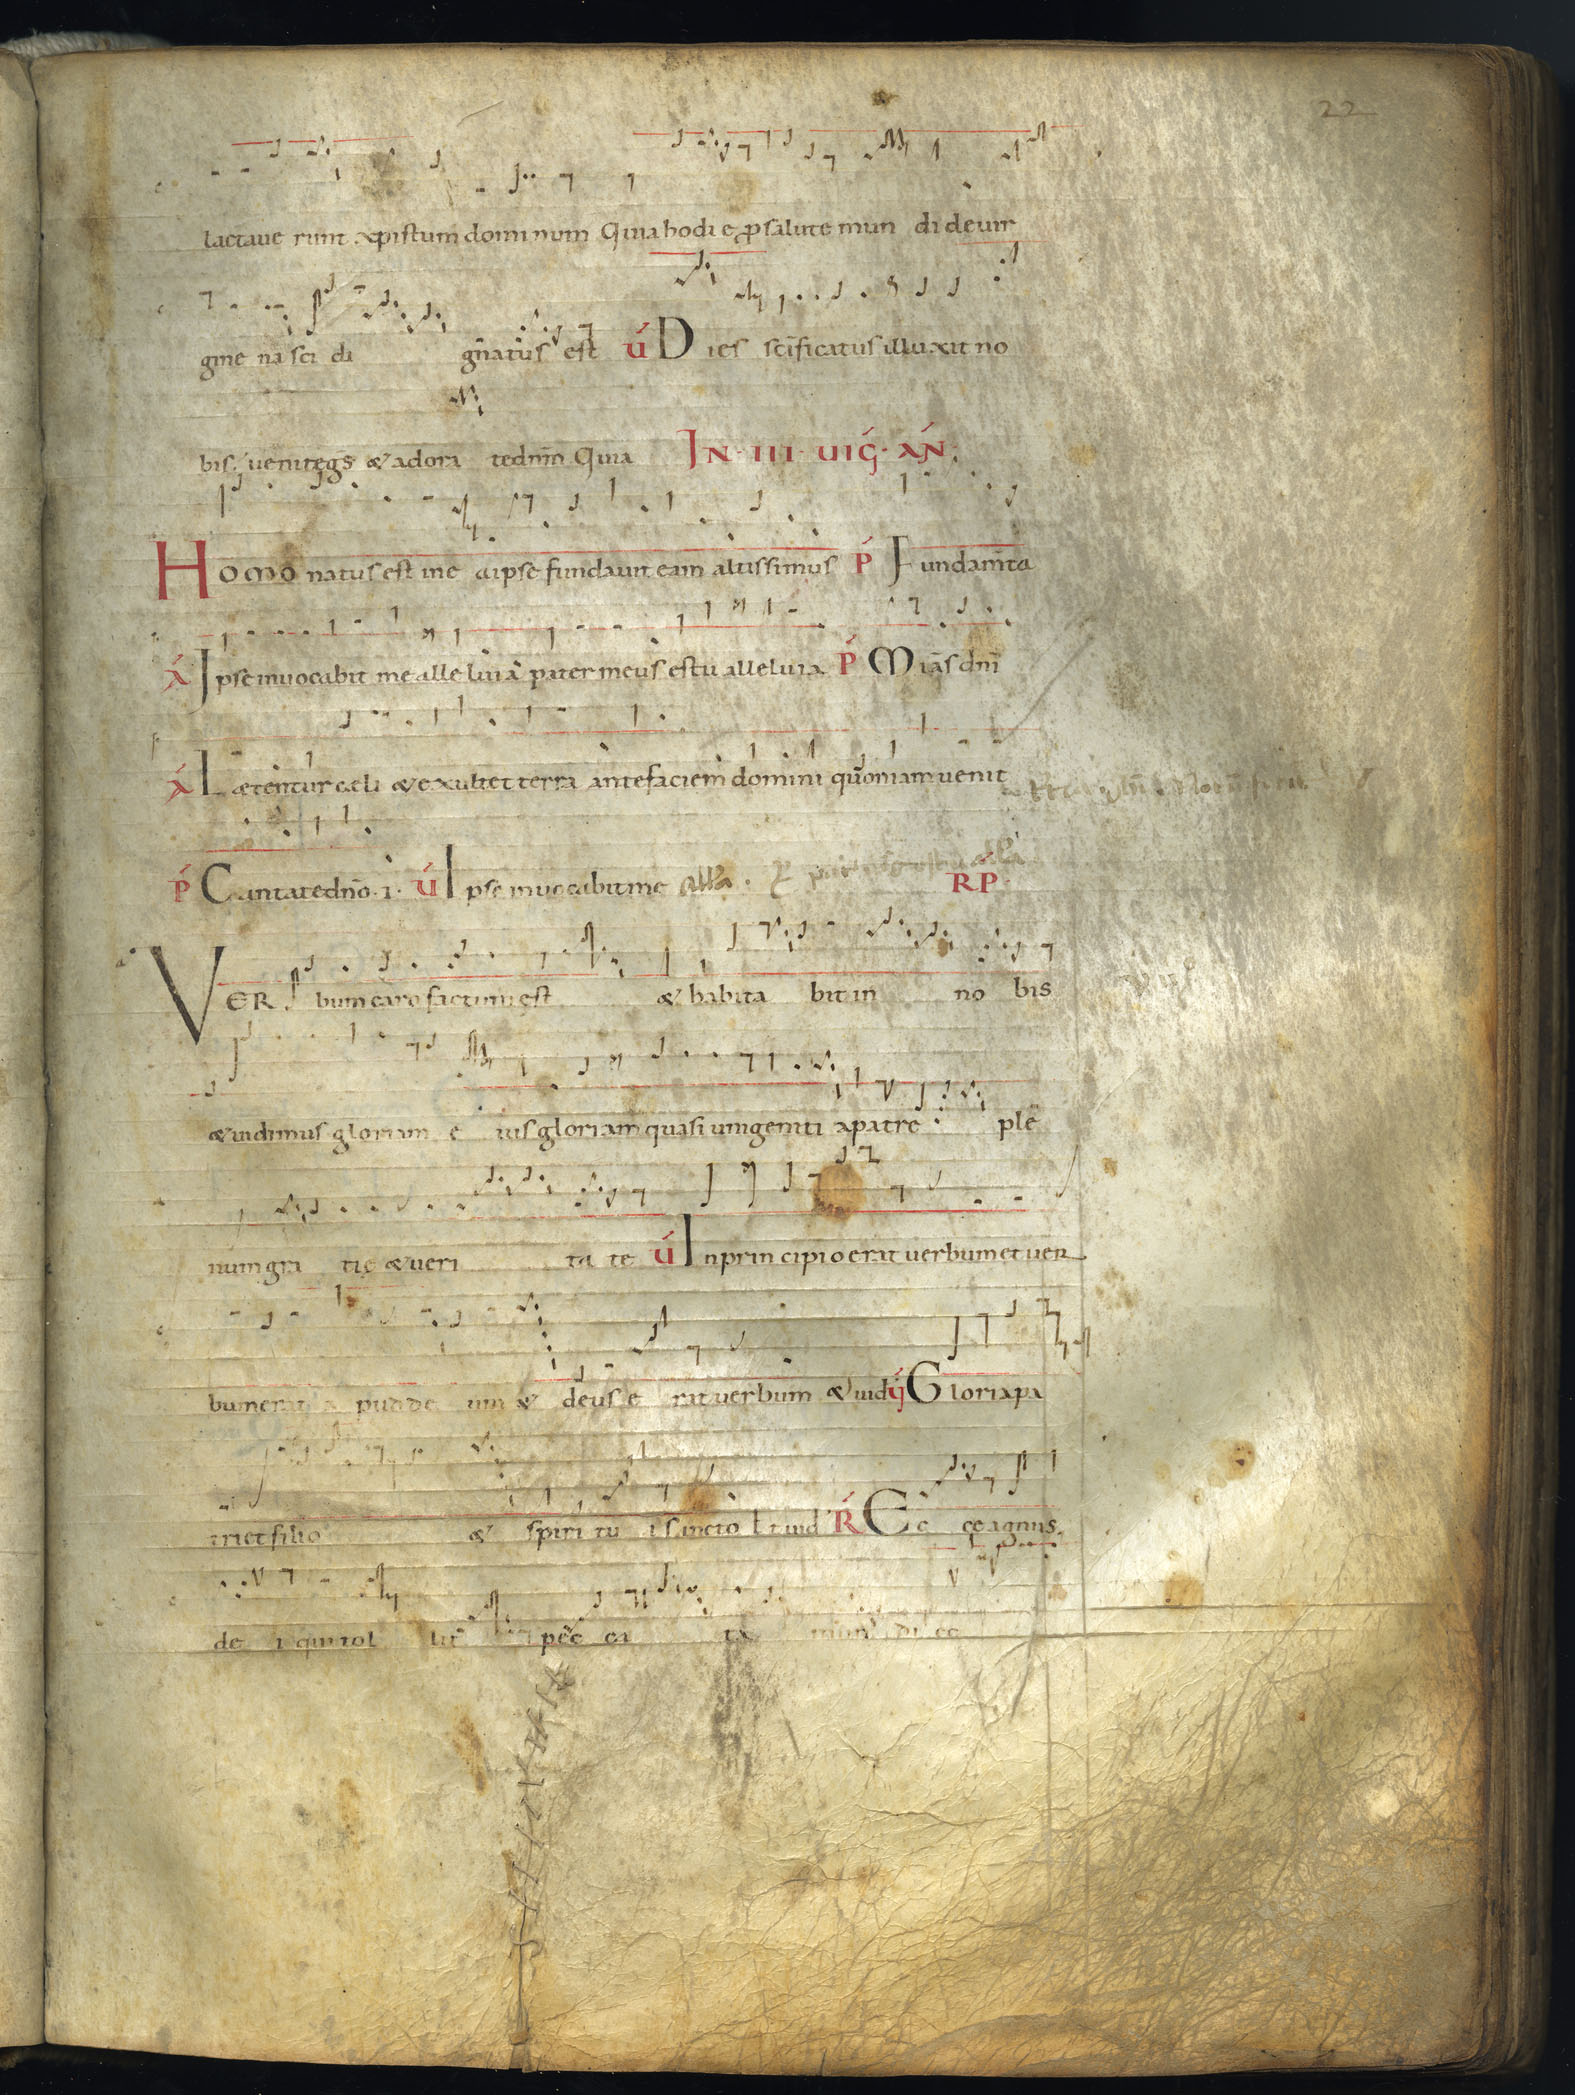 22
lactaue runt xpistum domi num Quia hodi e p salute mun di deuir
gine na sci di gnatus est V D ies scificatus illuxit no
bis venitegs & adora tednm Quia IN · III · UIG · AN ·
H omo natus est in e a ipse fundauit eam altissimus P F undamta
A I pse inuocabit me alle luia pater meus es tu alleluia P M ias dni
A L ætentur cæli & exultet terra ante faciem domini quoniam uenit
P C antatedno · i · V I pse inuocabit me alla . RP ·
V ER bum caro factum est & habita bit in no bis
& uidimus gloriam e ius gloriam quasi unigeniti a patre ple
num gra tie & ueri ta te V I n prin cipio erat uerbum et uer
bum erat a pud de um & deus e rat uerbum & uid V G loria pa
tri et filio & spiri tu i sancto Et uid R E c ce agnus
de i qui tol lit pec ca ta mun di ec